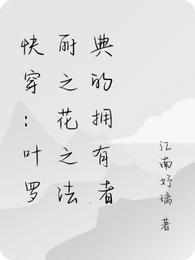 快穿：叶罗
耐之花之法
典的拥有者
江南妤璃 著